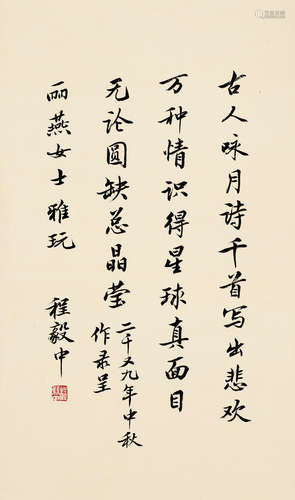 古人咏月诗千首写出悲欢
万种情识得星球真面目
无论圆缺总晶莹
二千又九年中秋
作录呈
丽燕女士雅玩
程毅中